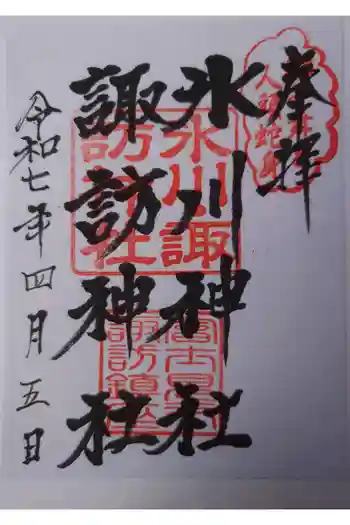 奉拝
氷川神社
諏訪神社
令和七年四月五日
氷川諏訪社
人頭蛇身